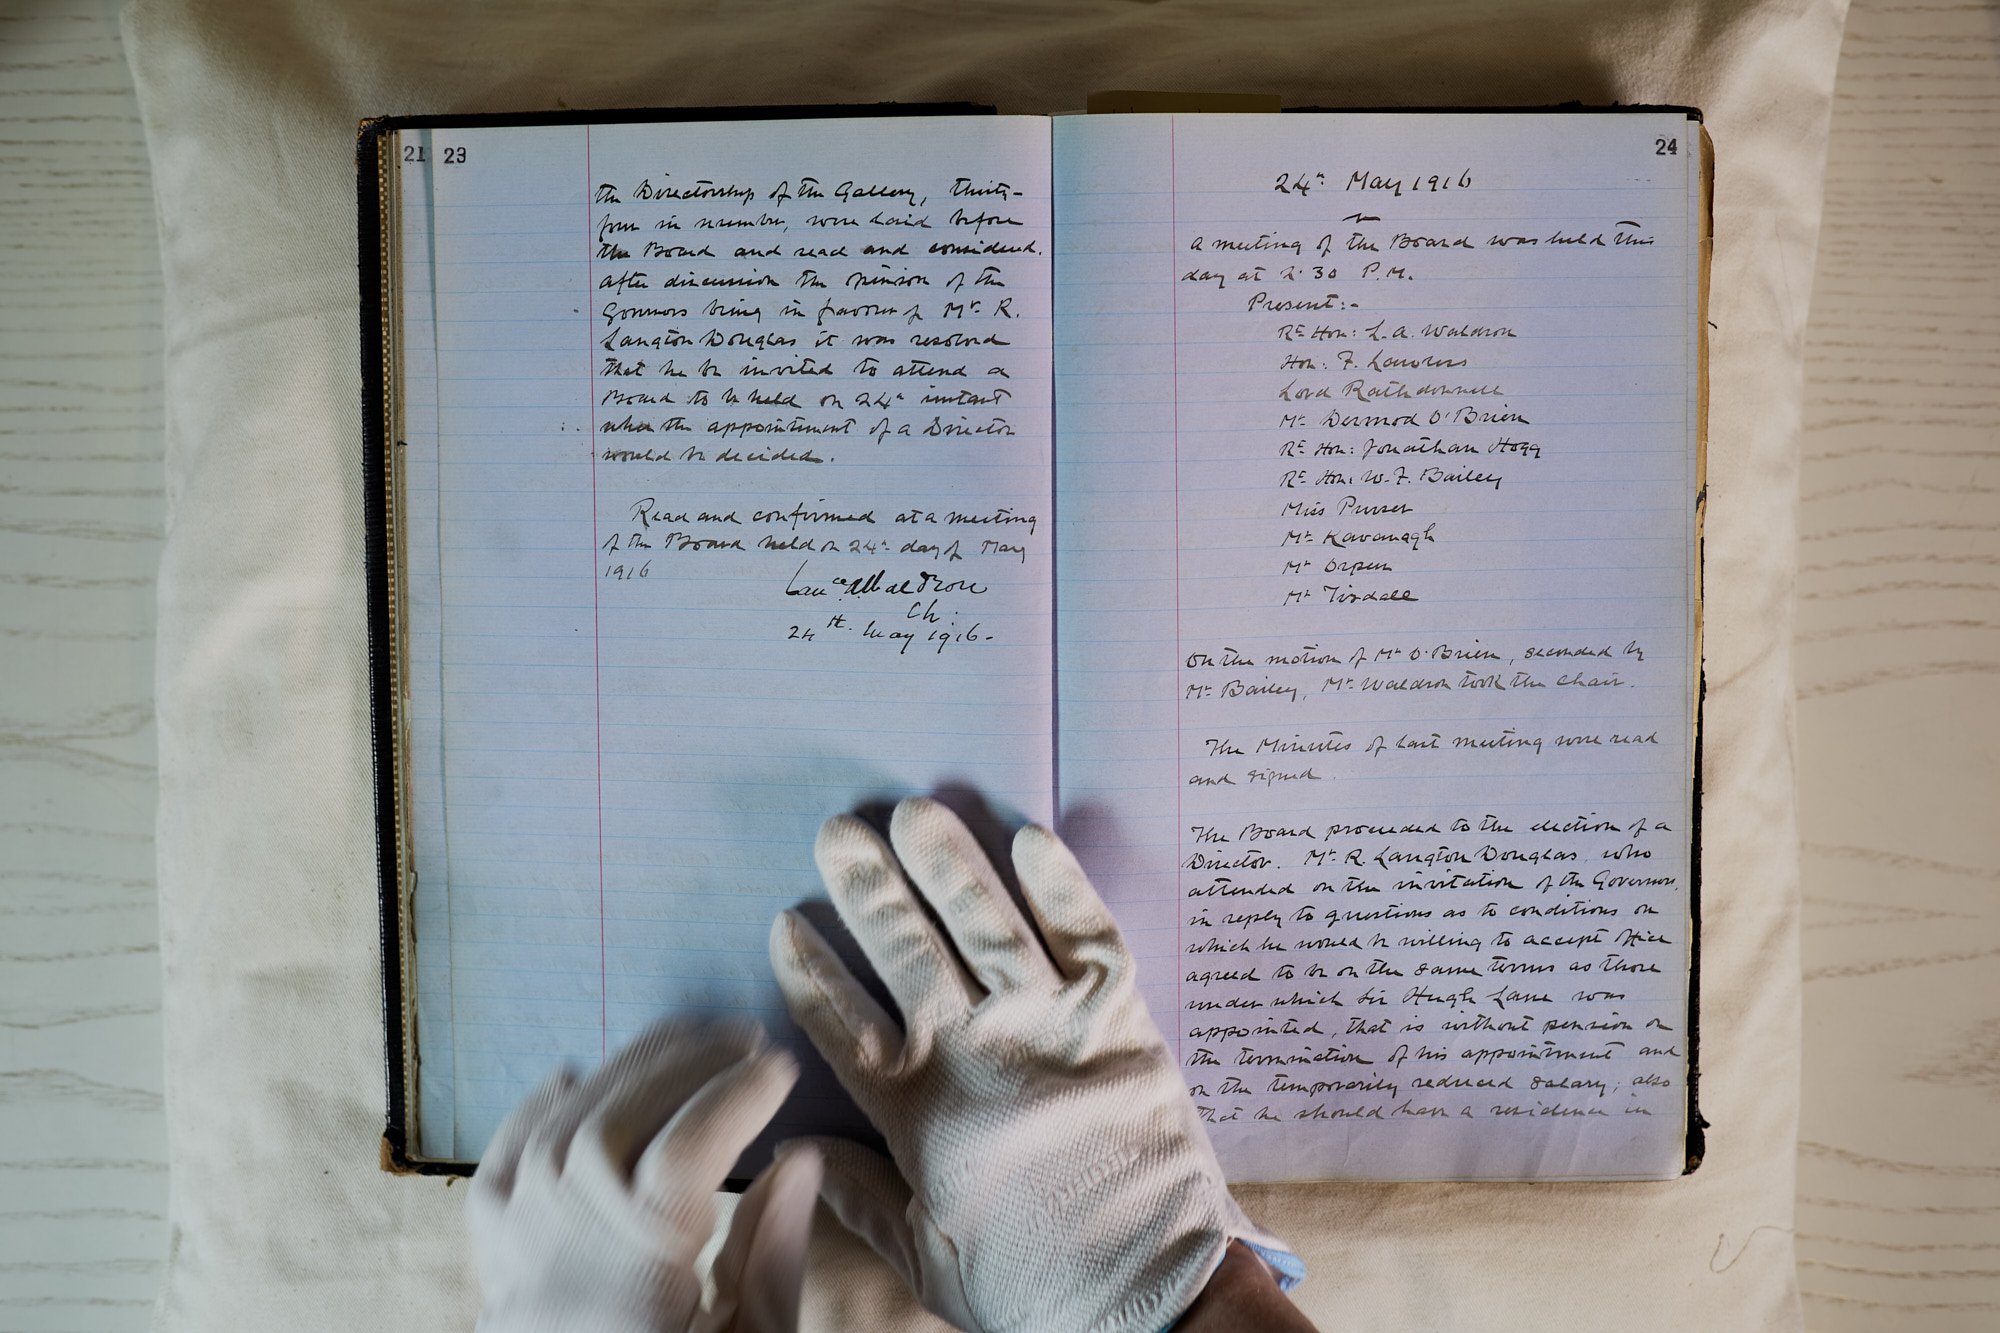 21 23
the Directorship of the Gallery, thirty-
four in number, were laid before
the Board and read and considered.
After discussion the opinion of the
Governors being in favour of Mr. R.
Langton Douglas it was resolved
that he be invited to attend a
Board to be held on 24th instant
when the appointment of a Director
would be decided.
Read and confirmed at a meeting
of the Board held on 24th day of May
1916
Laurce A Waldron
Ch.
24th. May 1916-
24
24th May 1916
A meeting of the Board was held this
day at 2.30 P.M.
Present:-
Rt Hon: L. A. Waldron
Hon: F. Lawless
Lord Rathdonnell
Mr Dermod O'Brien
Rt Hon: Jonathan Hogg
Rt Hon: W. F. Bailey
Miss Purser
Mr Kavanagh
Mr Orpen
Mr Tisdall
On the motion of Mr O'Brien, seconded by
Mr Bailey, Mr Waldron took the chair.
The Minutes of last meeting were read
and signed.
The Board proceeded to the election of a
Director. Mr R. Langton Douglas, who
attended on the invitation of the Governors,
in reply to questions as to conditions on
which he would be willing to accept office
agreed to be on the same terms as those
under which Sir Hugh Lane was
appointed, that is without pension on
the termination of his appointment and
on the temporarily reduced salary; also
that he should have a residence in